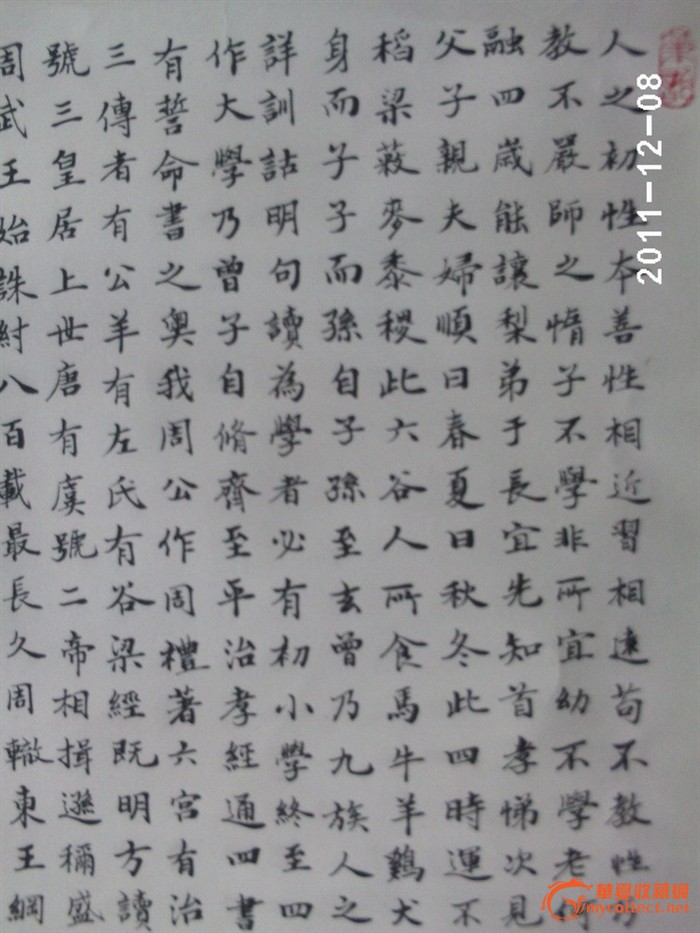 人之初性本善性相近習相遠苟不教性乃
教不嚴師之惰子不學非所宜幼不學老何
融四歲能讓梨弟于長宜先知首孝悌次見
父子親夫婦順曰春夏曰秋冬此四時運不
稻梁菽麥黍稷此六谷人所食馬牛羊鷄犬
身而子子而孫自子孫至玄曾乃九族人之
詳訓詁明句讀為學者必有初小學終至四
作大學乃曾子自脩齊至平治孝經通四書
有誓命書之奥我周公作周禮著六宮有治
三傳者有公羊有左氏有谷梁經既明方讀
號三皇居上世唐有虞號二帝相揖遜稱盛
周武王始誅紂八百載最長久周轍東王綱
2011-12-08
華夏收藏網
mycollect.net